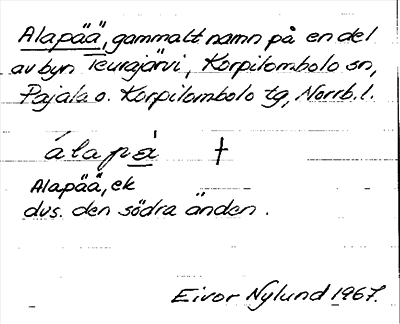 Alapää, gammalt namn på en del
av byn Teurajärvi, Korpilombolo sn,
Pajala o. Korpilombolo tg, Norrb.l.
álapä̀ †
Alapää, ek
dvs. den södra änden.
Eivor Nylund 1967.